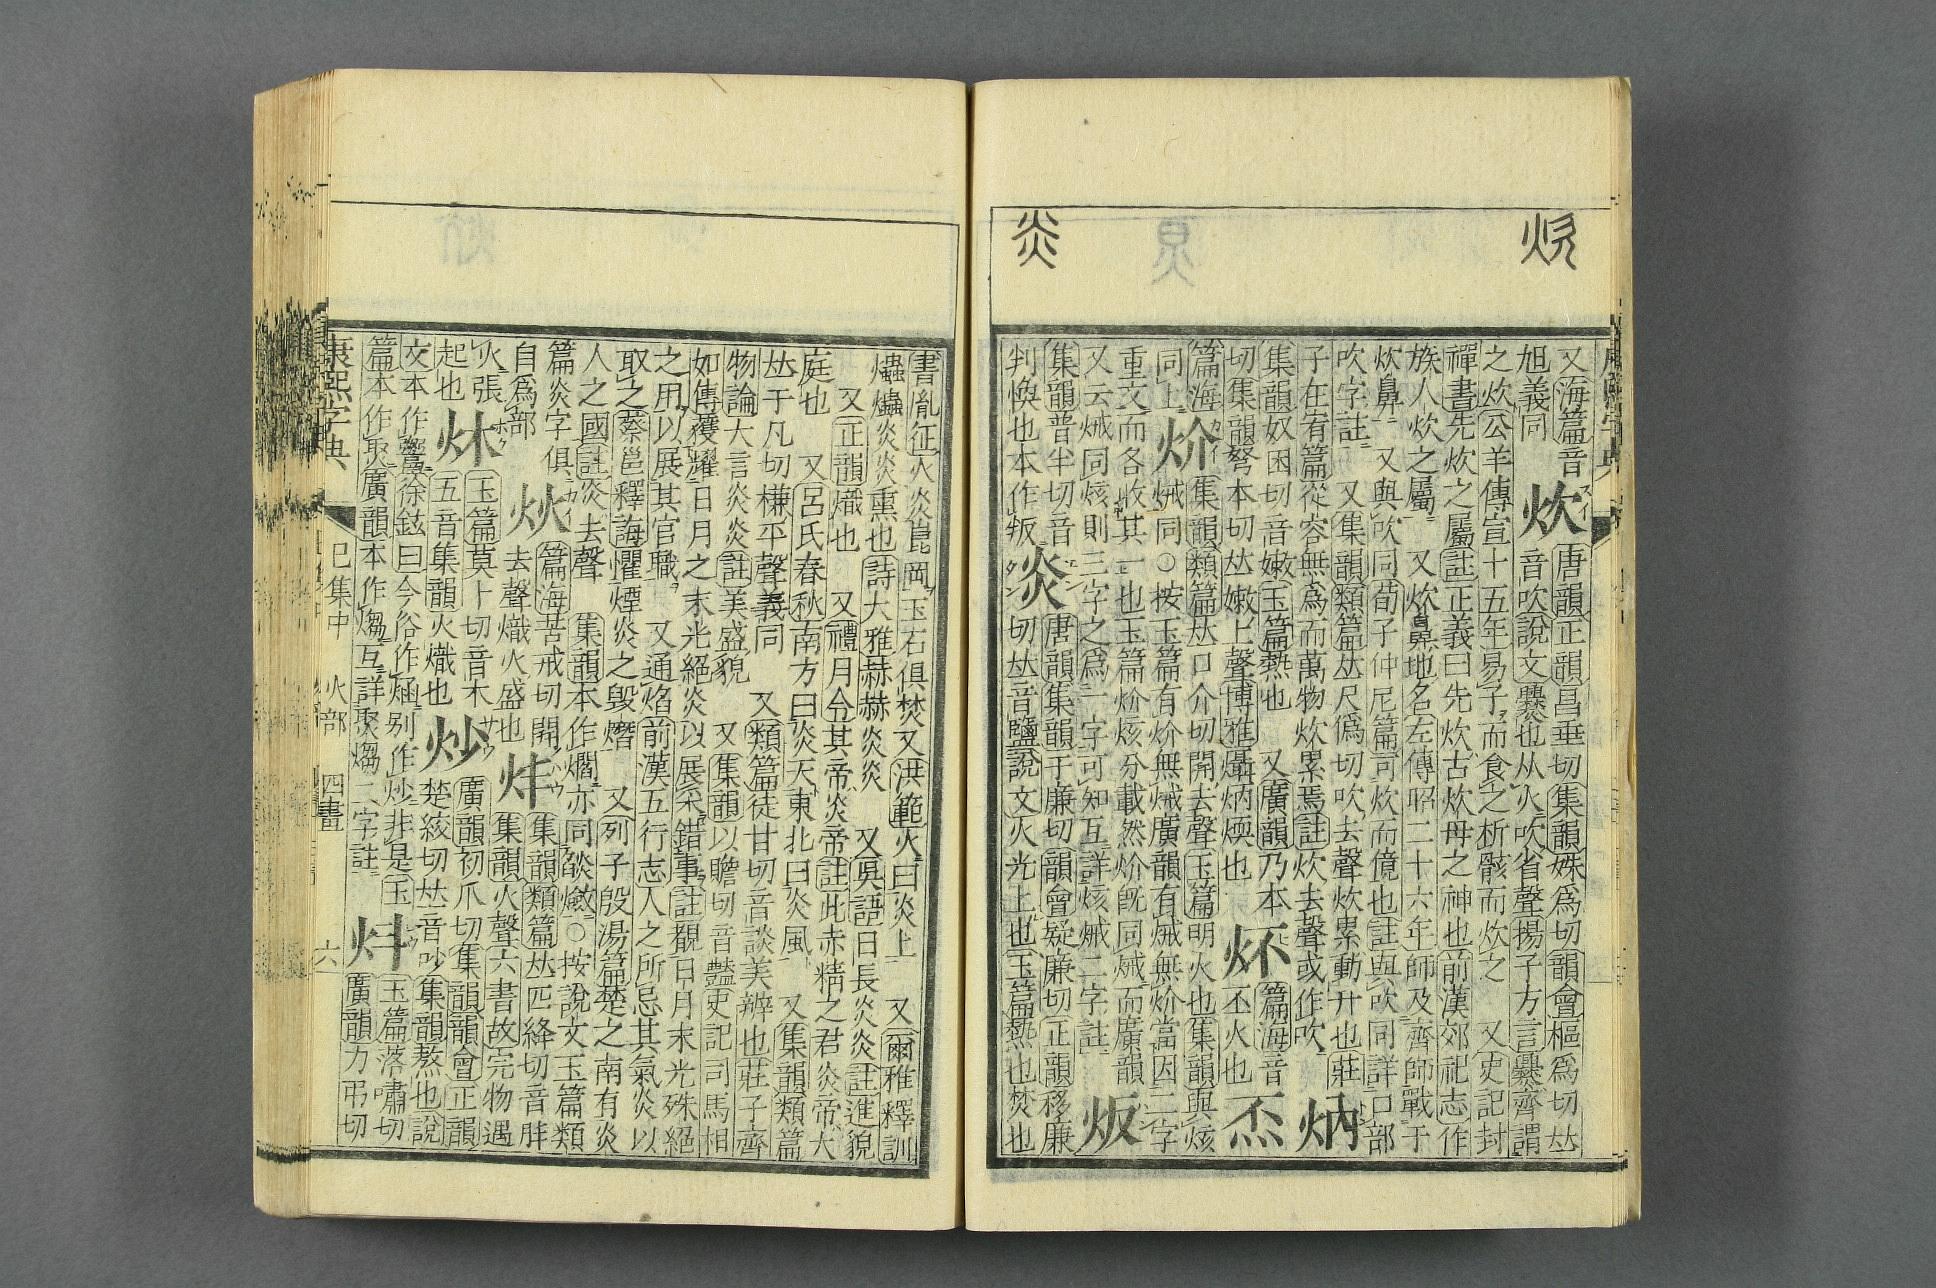 炊
炎
又海篇音
旭義同
炊
スイ
唐韻正韻昌垂切集韻姝爲切韻會樞爲切𠀤
音吹說文爨也从火吹省聲揚子方言爨齊謂
之炊公羊傳宣十五年易子而食之析骸而炊之 又史記封
禪書先炊之屬註正義曰先炊古炊母之神也前漢郊祀志作
族人炊之屬 又炊鼻地名左傳昭二十六年師及齊師戰于
炊鼻 又與吹同荀子仲尼篇可炊而僵也註與吹同詳口部
吹字註 又集韻類篇𠀤尺僞切吹去聲炊累動升也莊
子在宥篇從容無爲而萬物炊累焉註炊去聲或作吹
炳
集韻奴困切音嫩玉篇熱也 又廣韻乃本
切集韻弩本切𠀤嫩上聲博雅𤑔炳煗也
炋
篇海音
丕火也
炁
篇海
同上
炌
カイ
集韻類篇𠀤口介切開去聲玉篇明火也集韻與烗
㶰同○按玉篇有炌無㶰廣韻有㶰無炌當因二字
重文而各收其一也玉篇炌烗分載然炌旣同㶰而廣韻
又云㶰同烗則三字之爲一字可知互詳烗㶰二字註
炍
集韻普半切音
判煥也本作叛
炎
エン
タン
唐韻集韻于廉切韻會疑廉切正韻移廉
切𠀤音鹽說文火光上也玉篇熱也焚也
書胤征火炎崑岡玉石俱焚又洪範火曰炎上 又爾雅釋訓
爞爞炎炎熏也詩大雅赫赫炎炎 又吳語日長炎炎註進貌
又正韻熾也 又禮月令其帝炎帝註此赤精之君炎帝大
庭也 又呂氏春秋南方曰炎天東北曰炎風 又集韻類篇
𠀤于凡切㮇平聲義同 又類篇徒甘切音談美辨也莊子齊
物論大言炎炎註美盛貌 又集韻以贍切音豔史記司馬相
如傳獲耀日月之末光絕炎以展采錯事註覩日月末光殊絕
之用以展其官職 又通焰前漢五行志人之所忌其氣炎以
取之蔡邕釋誨懼煙炎之毀熸 又列子殷湯篇楚之南有炎
人之國註炎去聲 集韻本作爓亦同燄焱○按說文玉篇類
篇炎字俱
自爲部
炏
カイ
篇海苦戒切開
去聲熾火盛也
炐
集韻類篇𠀤匹絳切音胖
集韻火聲六書故完物遇
火張
起也
炑
ボク
玉篇莫卜切音木
五音集韻火熾也
炒
サウ
廣韻初爪切集韻韻會正韻
楚絞切𠀤音吵集韻熬也說
文本作𩱦徐鉉曰今俗作煼别作炒非是玉
篇本作㷅廣韻本作煼互詳㷅煼二字註
炓
玉篇落嘯切
廣韻力弔切
康熙字典
巳集中 火部 四畫
六